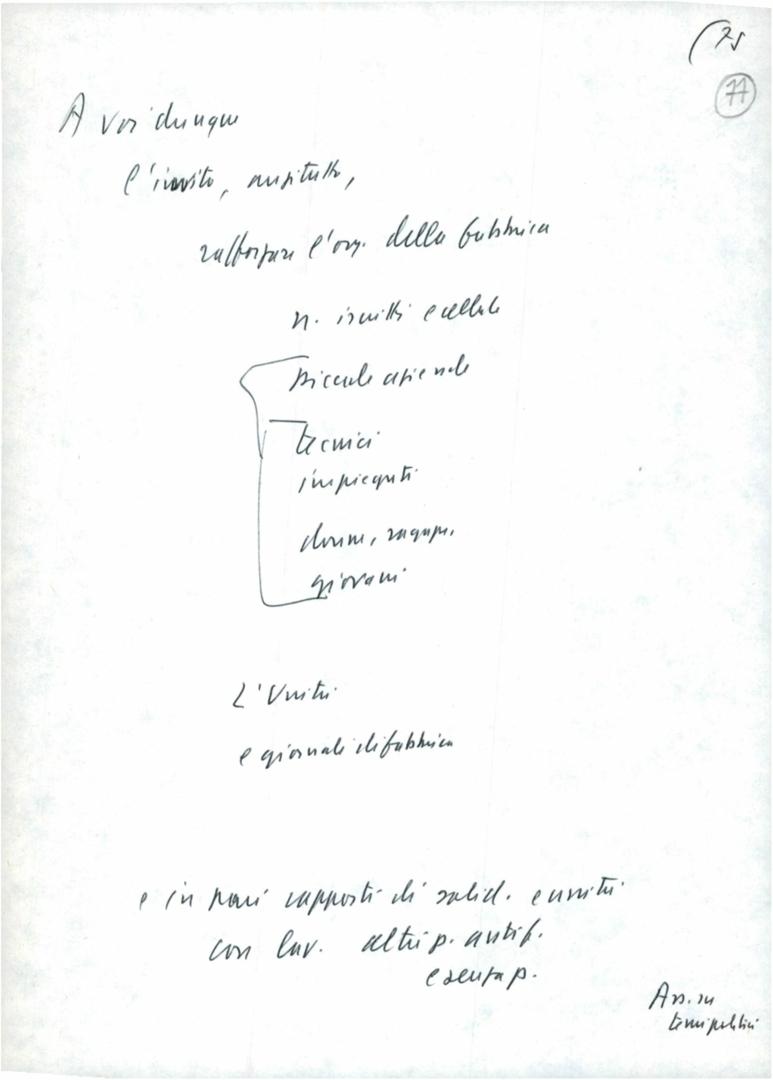 (75
77
A voi dunque
l'invito, anzitutto,
rafforzare l'org. della fabbrica
n. iscritti e cellule
piccole aziende
tecnici
impiegati
donne, ragazze,
giovani
L'Unità
e giornali di fabbrica
e in pari rapporti di solid. e unità
con lav. altri p. antif.
e senza p.
Ass. su
temi politici